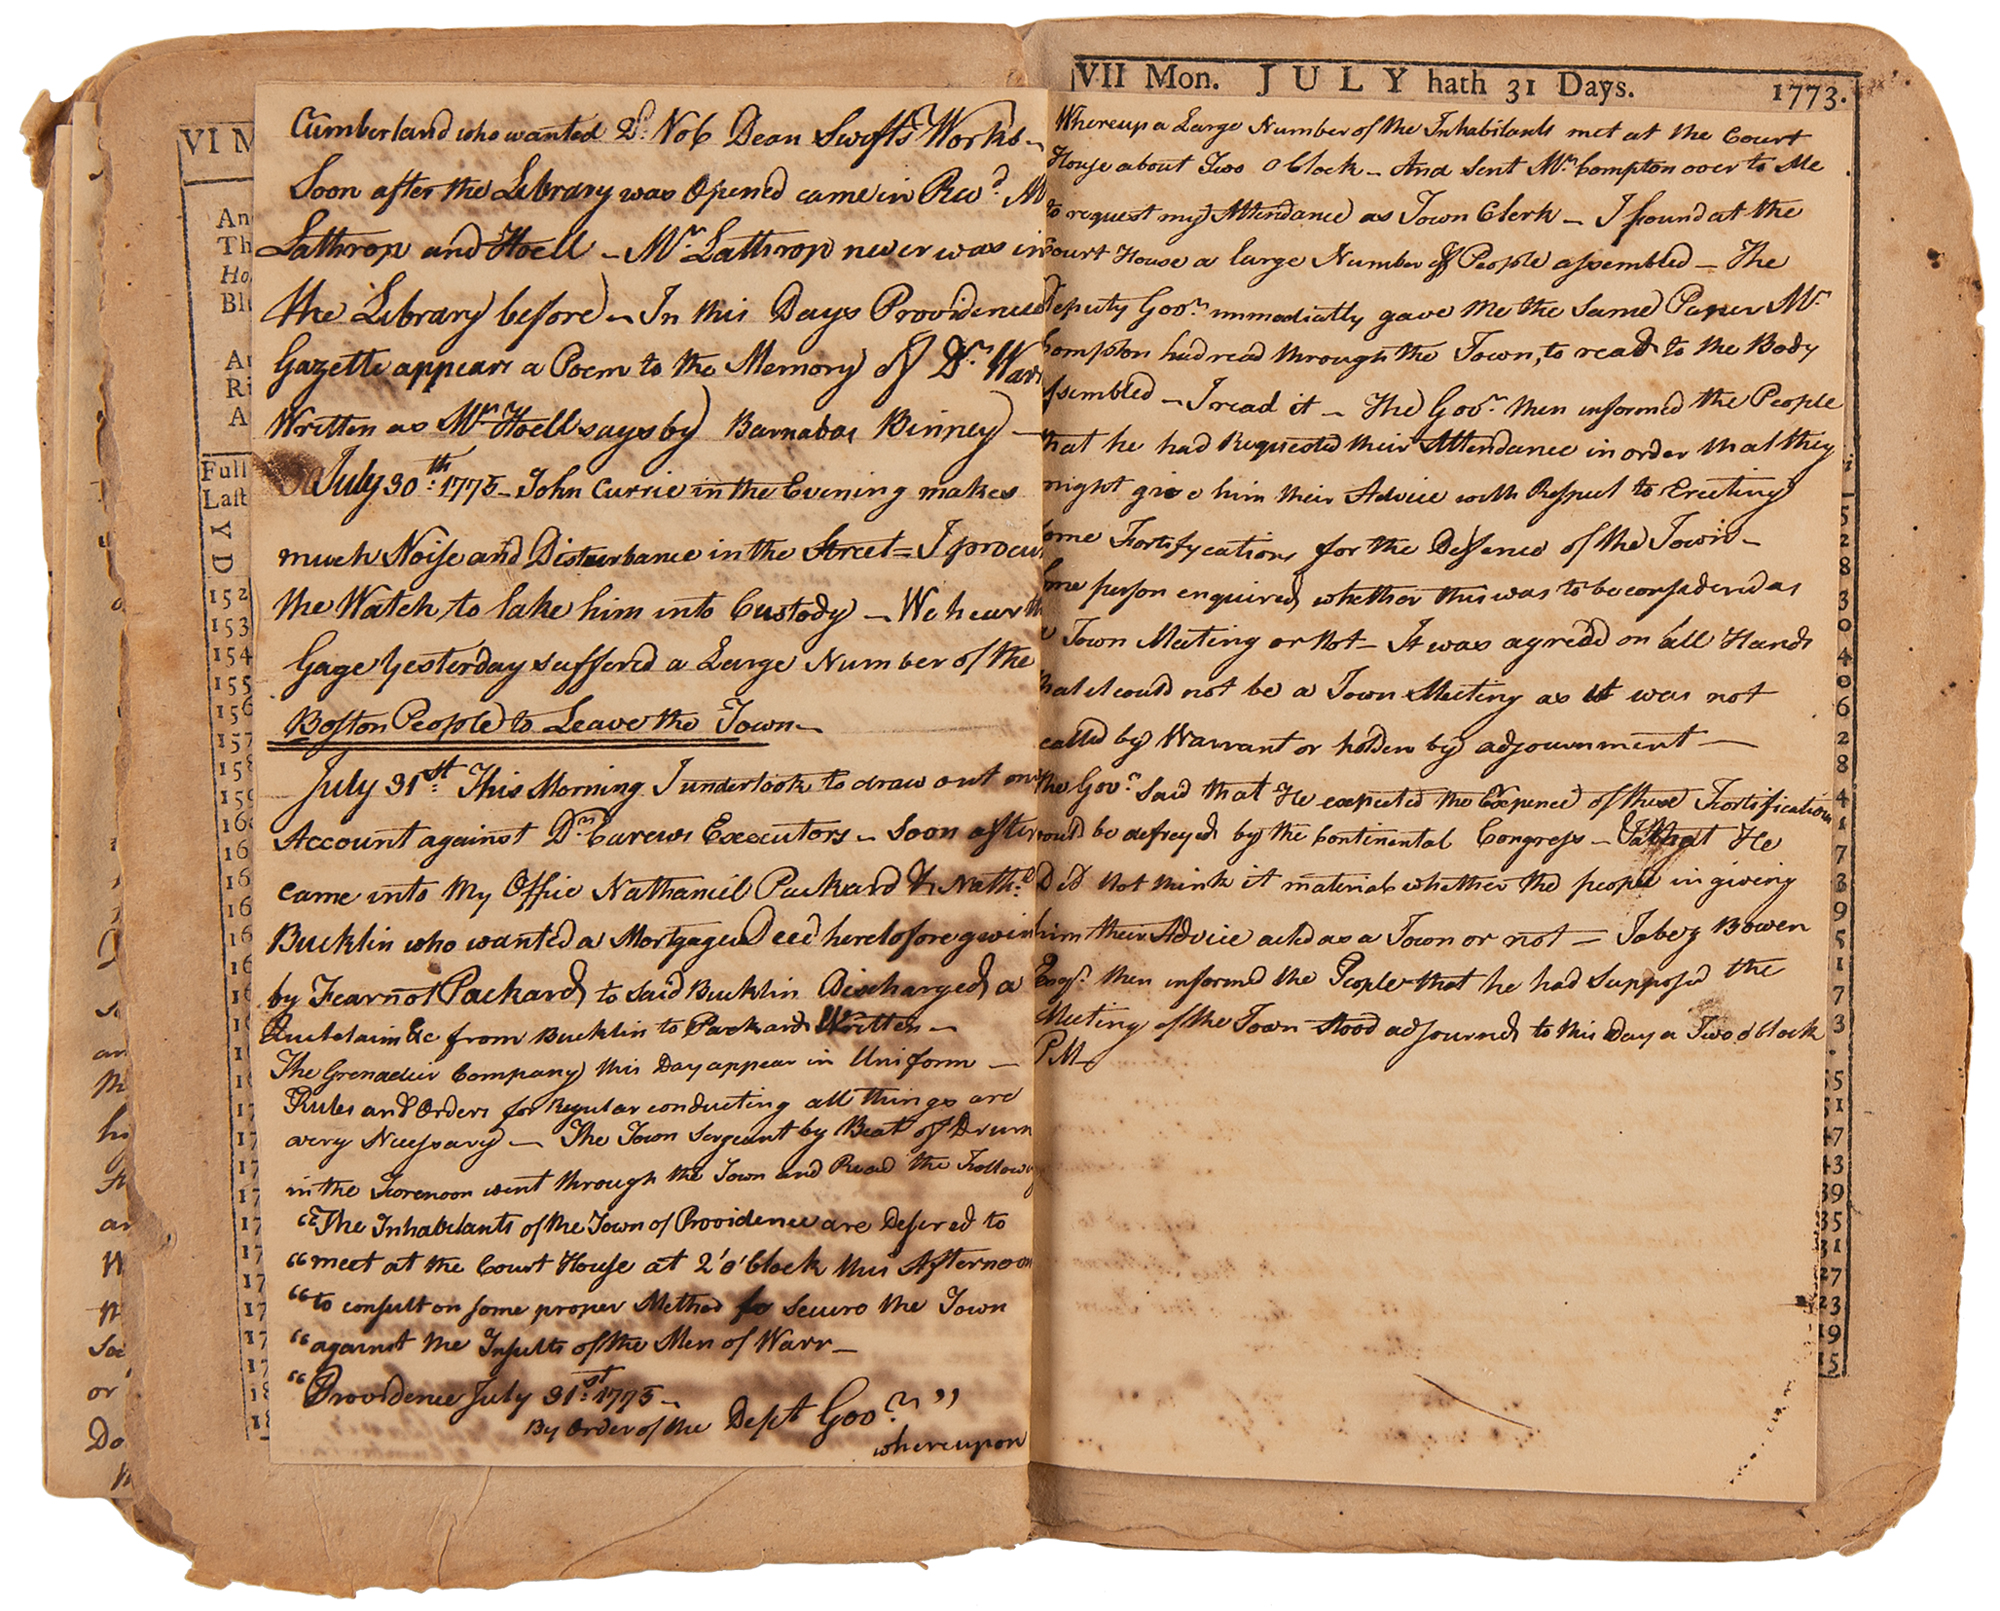 Cumberland who wanted Do. No 6 Dean Swifts Works –
Soon after the Library was Opened came in Revd. M
Lathrop and Hoell – Mr. Lathrop never was in
the Library before – In this Days Providence
Gazette appears a Poem to the Memory of Dr. Warr
Written as Mr. Hoell says by Barnabas Binney –
July 30th. 1775 – John Currie in the Evening makes
much Noise and Disturbance in the Street = I procur
the Watch to take him into Custody – We hear th
Gage Yesterday suffered a Large Number of the
Boston People to Leave the Town –
July 31st. This Morning I undertook to draw out
Account against Dr. Carews Executors – Soon after
came into My Office Nathaniel Packard & Nathl.
Bucklin who wanted a Mortgage Deed heretofore given
by Fearnot Packard to said Bucklin Discharged, a
Quitclaim &c from Bucklin to Packard Written –
The Grenadier Company this Day appear in Uniform –
Rules and Orders for Regular conducting all things are
very Necessary – The Town Sergeant by Beat of Drum
in the Forenoon went through the Town and Read the Follow
"The Inhabitants of the Town of Providence are Desired to
"meet at the Court House at 2 o'Clock this Afternoon
"to consult on some proper Method to secure the Town
"against the Insults of the Men of Warr –
"Providence July 31st. 1775 –
By Order of the Dept Govr. "
whereupon
VI M
An
Th
Ho
Bl
A
Ri
A
Full
Last
Y D
152
153
154
155
156
157
158
VII Mon. JULY hath 31 Days. 1773.
Whereup a Large Number of the Inhabitants met at the Court
House about Two o Clock – And sent Mr. Compton over to Me
to request my Attendance as Town Clerk – I found at the
Court House a large Number of People assembled – The
Deputy Govr. immediatly gave me the Same Paper Mr.
Compton had read through the Town, to read to the Body
Assembled – I read it – The Govr. then informed the People
that he had Requested their Attendance in order that they
might give him their Advice with Respect to Erecting
some Fortifycations for the Deffence of the Town –
Some person enquired whether this was to be considered as
a Town Meeting or Not – It was agreed on all Hands
that it could not be a Town Meeting as it was not
called by Warrant or holden by adjournment –
the Govr. Said that He expected the Expence of these Fortifications
would be defreyed by the Continental Congress – that He
Did not think it material whether the people in giving
him their Advice acted as a Town or not = Jabez Bowen
Esqr. then informed the People that he had Supposed the
Meeting of the Town stood adjourned to this Day a Two o Clock
P.M. –